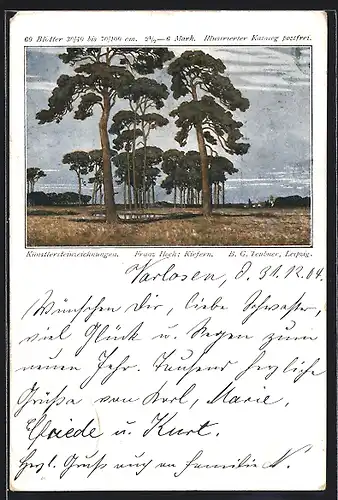 60 Blätter 30/40 bis 70/100 cm. 2½—6 Mark. Illustrierter Katalog postfrei.
Künstlersteinzeichnungen. Franz Hoch: Kiefern. B. G. Teubner, Leipzig.
Varlosen, d. 31.12.04.
Wünschen Dir, liebe Schwester,
viel Glück u. Segen zum
neuen Jahr. Tausend herzliche
Grüße von Karl, Marie,
Friede u. Kurt.
Herzl. Gruß auch an Familie N.